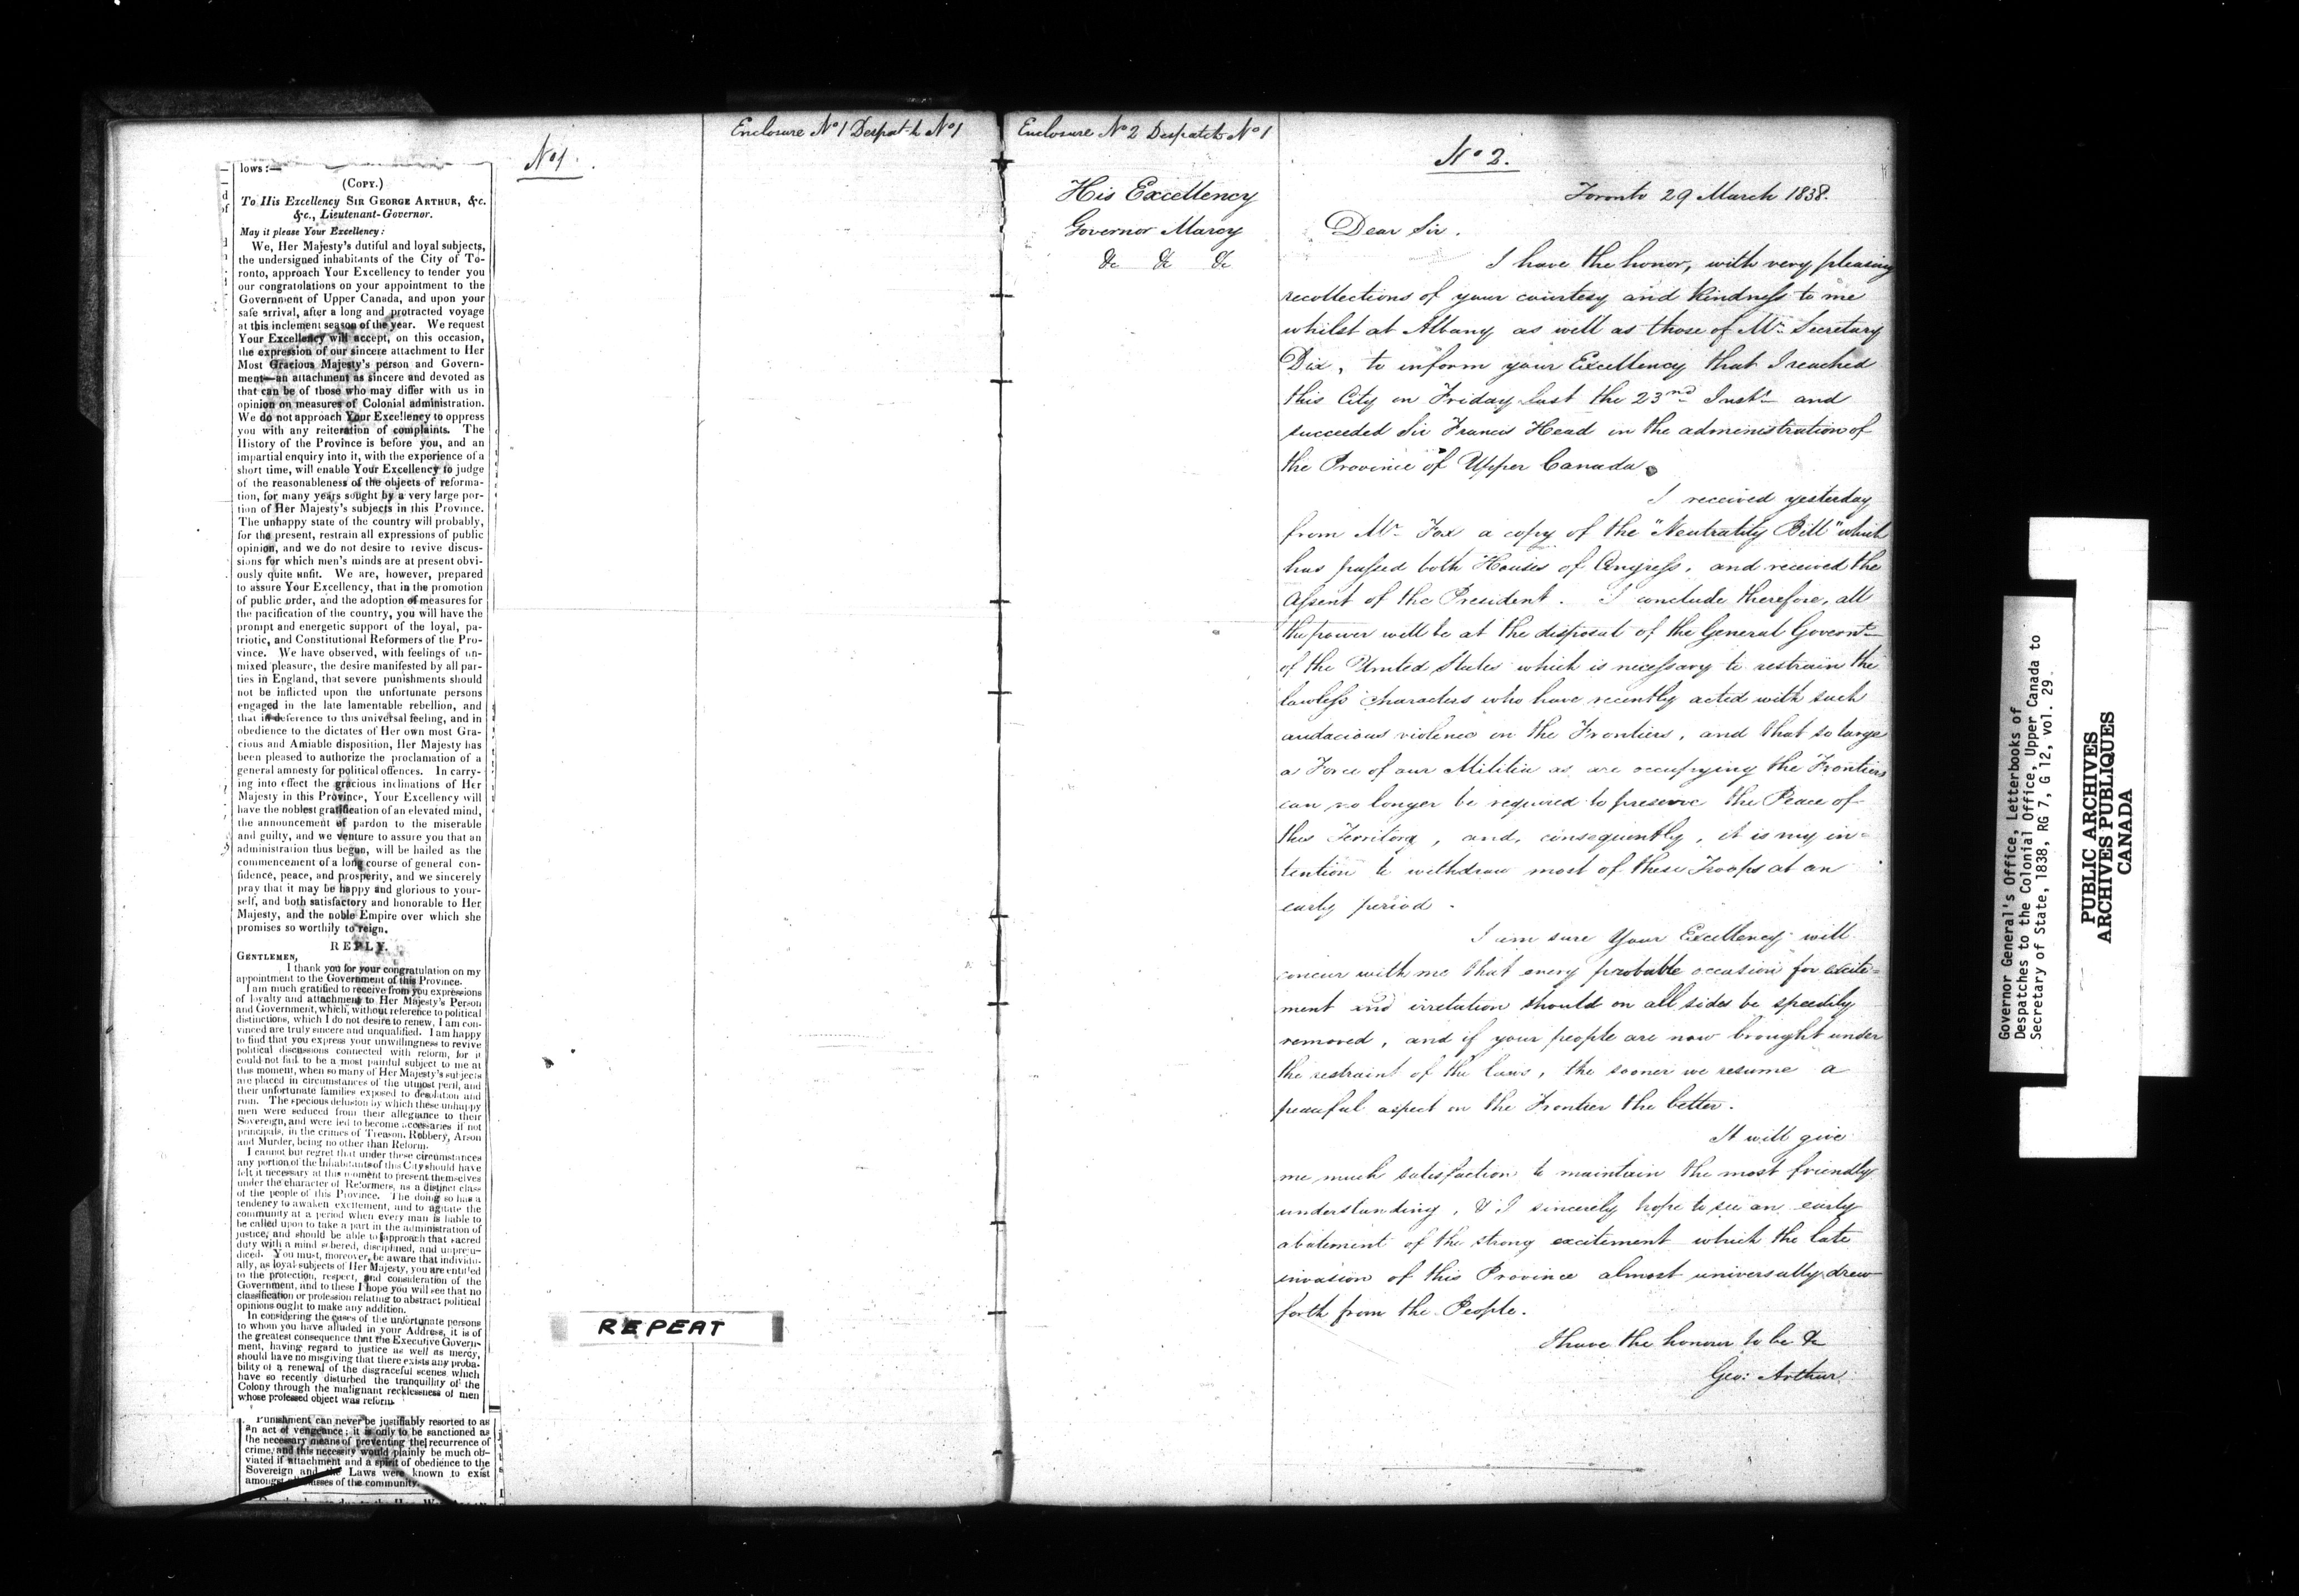 Enclosure No 1 Despatch No 1
No 1.
lows:—
(COPY.)
To His Excellency SIR GEORGE ARTHUR, &c.
&c., Lieutenant-Governor.
May it please Your Excellency:
We, Her Majesty's dutiful and loyal subjects,
the undersigned inhabitants of the City of To-
ronto, approach Your Excellency to tender you
our congratulations on your appointment to the
Government of Upper Canada, and upon your
safe arrival, after a long and protracted voyage
at this inclement season of the year. We request
Your Excellency will accept, on this occasion,
the expression of our sincere attachment to Her
Most Gracious Majesty's person and Govern-
ment—an attachment as sincere and devoted as
that can be of those who may differ with us in
opinion on measures of Colonial administration.
We do not approach Your Excellency to oppress
you with any reiteration of complaints. The
History of the Province is before you, and an
impartial enquiry into it, with the experience of a
short time, will enable Your Excellency to judge
of the reasonableness of the objects of reforma-
tion, for many years sought by a very large por-
tion of Her Majesty's subjects in this Province.
The unhappy state of the country will probably,
for the present, restrain all expressions of public
opinion, and we do not desire to revive discus-
sions for which men's minds are at present obvi-
ously quite unfit. We are, however, prepared
to assure Your Excellency, that in the promotion
of public order, and the adoption of measures for
the pacification of the country, you will have the
prompt and energetic support of the loyal, pa-
triotic, and Constitutional Reformers of the Pro-
vince. We have observed, with feelings of un-
mixed pleasure, the desire manifested by all par-
ties in England, that severe punishments should
not be inflicted upon the unfortunate persons
engaged in the late lamentable rebellion, and
that in deference to this universal feeling, and in
obedience to the dictates of Her own most Gra-
cious and Amiable disposition, Her Majesty has
been pleased to authorize the proclamation of a
general amnesty for political offences. In carry-
ing into effect the gracious inclinations of Her
Majesty in this Province, Your Excellency will
have the noblest gratification of an elevated mind,
the announcement of pardon to the miserable
and guilty, and we venture to assure you that an
administration thus begun, will be hailed as the
commencement of a long course of general con-
fidence, peace, and prosperity, and we sincerely
pray that it may be happy and glorious to your-
self, and both satisfactory and honorable to Her
Majesty, and the noble Empire over which she
promises so worthily to reign.
REPLY.
GENTLEMEN,
I thank you for your congratulation on my
appointment to the Government of this Province.
I am much gratified to receive from you expressions
of loyalty and attachment to Her Majesty's Person
and Government, which, without reference to political
distinctions, which I do not desire to renew, I am con-
vinced are truly sincere and unqualified. I am happy
to find that you express your unwillingness to revive
political discussions connected with reform, for it
could not fail to be a most painful subject to me at
this moment, when so many of Her Majesty's subjects
are placed in circumstances of the utmost peril, and
their unfortunate families exposed to desolation and
ruin. The specious delusion by which these unhappy
men were seduced from their allegiance to their
Sovereign, and were led to become accessaries if not
principals, in the crimes of Treason, Robbery, Arson
and Murder, being no other than Reform.
I cannot but regret that under these circumstances
any portion of the Inhabitants of this City should have
felt it necessary at this moment to present themselves
under the character of Reformers, as a distinct class
of the people of this Province. The doing so has a
tendency to awaken excitement, and to agitate the
community at a period when every man is liable to
be called upon to take a part in the administration of
justice, and should be able to approach that sacred
duty with a mind sobered, disciplined, and unpreju-
diced. You must, moreover, be aware that individu-
ally, as loyal subjects of Her Majesty, you are entitled
to the protection, respect, and consideration of the
Government, and to these I hope you will see that no
classification or profession relating to abstract political
opinions ought to make any addition.
In considering the cases of the unfortunate persons
to whom you have alluded in your Address, it is of
the greatest consequence that the Executive Govern-
ment, having regard to justice as well as mercy,
should have no misgiving that there exists any proba-
bility of a renewal of the disgraceful scenes which
have so recently disturbed the tranquillity of the
Colony through the malignant recklessness of men
whose professed object was reform.
Punishment can never be justifiably resorted to as
an act of vengeance; it is only to be sanctioned as
the necessary means of preventing the recurrence of
crime, and this necessity would plainly be much ob-
viated if attachment and a spirit of obedience to the
Sovereign and the Laws were known to exist
amongst all classes of the community.
REPEAT
Enclosure No 2 Despatch No 1
No 2.
His Excellency
Governor Marcy
&c &c &c
Toronto 29 March 1838.
Dear Sir.
I have the honor, with very pleasing
recollections of your courtesy and kindness to me
whilst at Albany as well as those of Mr. Secretary
Dix, to inform your Excellency that I reached
this City on Friday last the 23nd Inst. and
succeeded Sir Francis Head in the administration of
the Province of Upper Canada.
I received yesterday
from Mr. Fox a copy of the "Neutrality Bill" which
has passed both Houses of Congress, and received the
Assent of the President. I conclude therefore, all
the power will be at the disposal of the General Governt.
of the United States which is necessary to restrain the
lawless characters who have recently acted with such
audacious violence on the Frontiers, and that so large
a Force of our Militia as are occupying the Frontiers
can no longer be required to preserve the Peace of
this Territory, and, consequently, it is my in-
tention to withdraw most of these Troops at an
early period.
I am sure Your Excellency will
concur with me that every probable occasion for excite-
ment and irretation should on all sides be speedily
removed, and if your people are now brought under
the restraint of the laws, the sooner we resume a
peaceful aspect on the Frontier the better.
It will give
me much satisfaction to maintain the most friendly
understanding, & I sincerely hope to see an early
abatement of the strong excitement which the late
invasion of this Province almost universally drew
forth from the People.
I have the honour to be &c
Geo: Arthur
Governor General's Office, Letterbooks of
Despatches to the Colonial Office, Upper Canada to
Secretary of State, 1838, RG 7, G 12, vol. 29.
PUBLIC ARCHIVES
ARCHIVES PUBLIQUES
CANADA